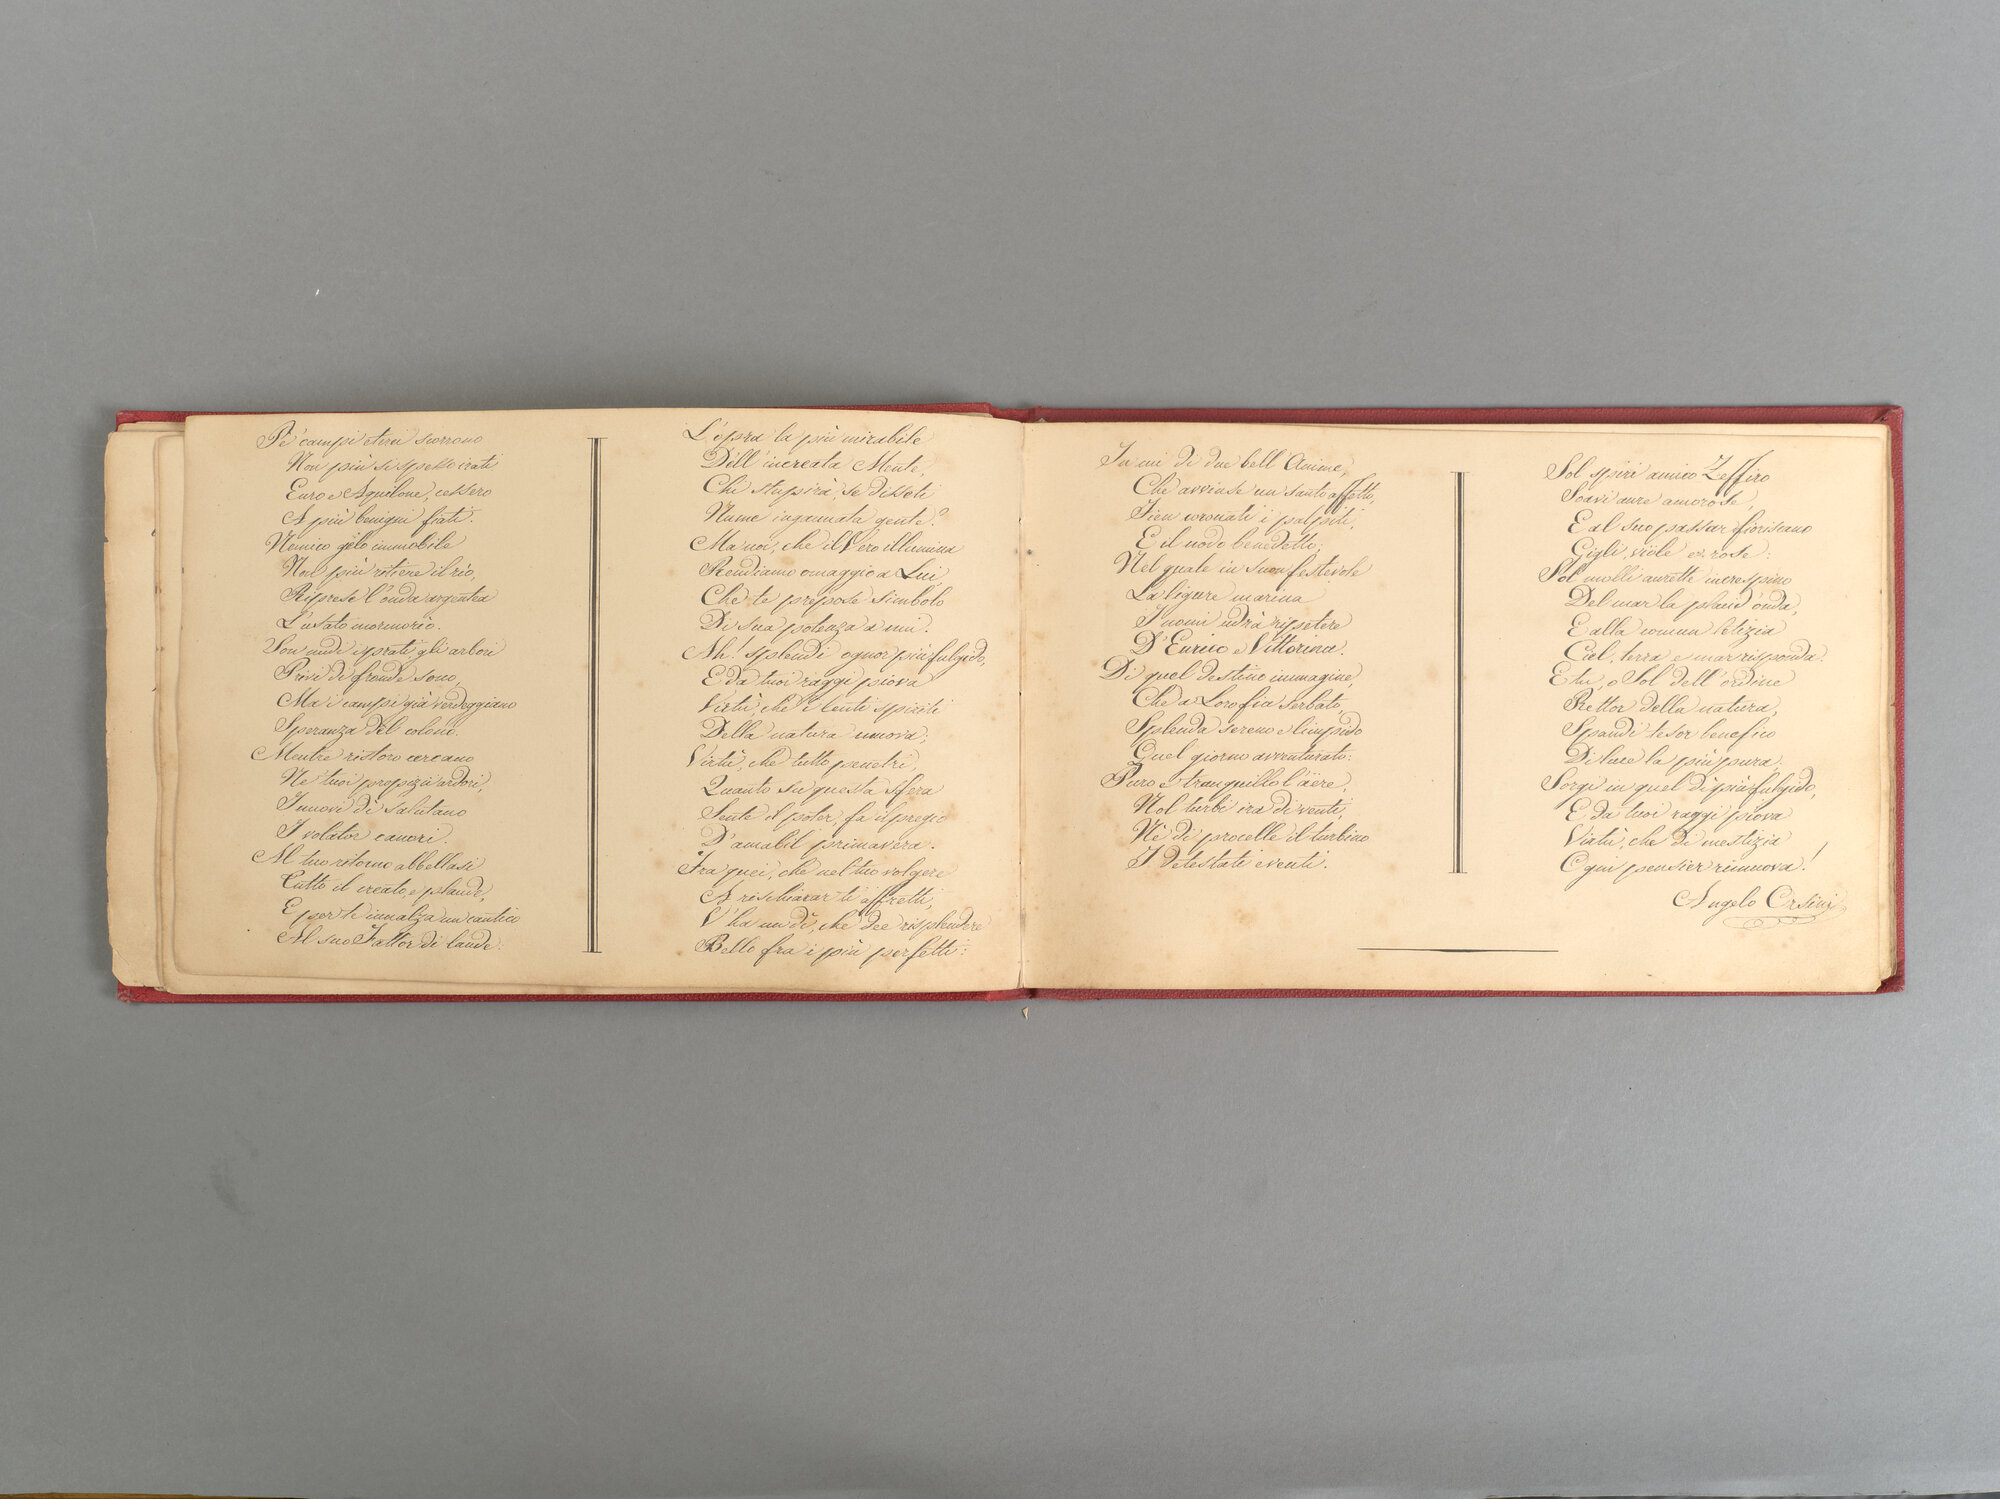 Pe' campi eterei scorrono
Non più si spesso irati
Euro e Aquilone, cessero
A più benigni fiati.
Nemico gelo immobile
Non più ritiene il rio,
Riprese l'onda argentea
L'usato mormorio.
Son nudi i prati gli arbori
Privi di fronde sono,
Ma i campi già verdeggiano
Speranza del colono.
Mentre ristoro cercano
Ne' tuoi propizi ardori,
I nuovi dì salutano
I volator canori.
Al tuo ritorno abbellasi
Tutto il creato, e plaude,
E per te innalza un cantico
Al suo Fattor di laude:
L'opra la più mirabile
Dell'increata Mente,
Chi stupirà, se disseti
Nume ingannata gente?
Ma noi, che il Vero illumina
Rendiamo omaggio a Lui,
Che te prepose simbolo
Di sua potenza a nui.
Ah! splendi ognor più fulgido,
E da tuoi raggi piova
Virtù, che i lenti spiriti
Della natura muova;
Virtù, che tutto penetri,
Quanto su questa sfera
Sente il poter, fa il pregio
D'amabil primavera.
Fra quei, che nel tuo volgere
A rischiarar ti affretti,
V'ha un dì, che dee risplendere
Bello fra i più perfetti:
In cui di due bell'Anime,
Che avvinse un santo affetto,
Sien coronati i palpiti,
E il nodo benedetto;
Nel quale in suon festevole
La ligure marina
I nomi udrà ripetere
D'Enrico e Vittorina.
Di quel destino immagine,
Che a Loro fia serbato,
Splenda sereno e limpido
Quel giorno avventurato:
Puro e tranquillo l'aere,
Nol turbi ira di venti,
Nè di procelle il turbine
I detestati eventi.
Sol spiri amico Zeffiro
Soavi aure amorose,
E al suo passar fioriscano
Gigli, viole e rose:
Sol molli aurette increspino
Del mar la placid'onda,
E alla comun letizia
Ciel, terra e mar risponda.
E tu, o Sol dell'ordine
Rettor della natura,
Spandi tesor benefico
Di luce la più pura:
Sorgi in quel Dì più fulgido,
E da tuoi raggi piova
Virtù, che di mestizia
Ogni pensier rimuova!
Angelo Orsini